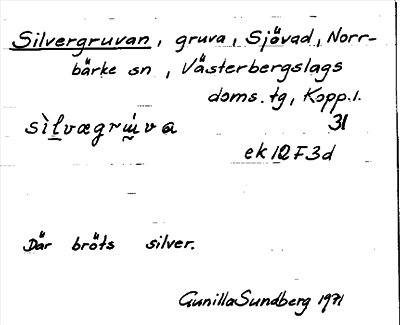 Silvergruvan, gruva, Sjövad, Norr-
bärke sn, Västerbergslags
doms. tg, Kopp. l.
sìlvægrùva 31
ek 12F3d
Där bröts silver.
Gunilla Sundberg 1971